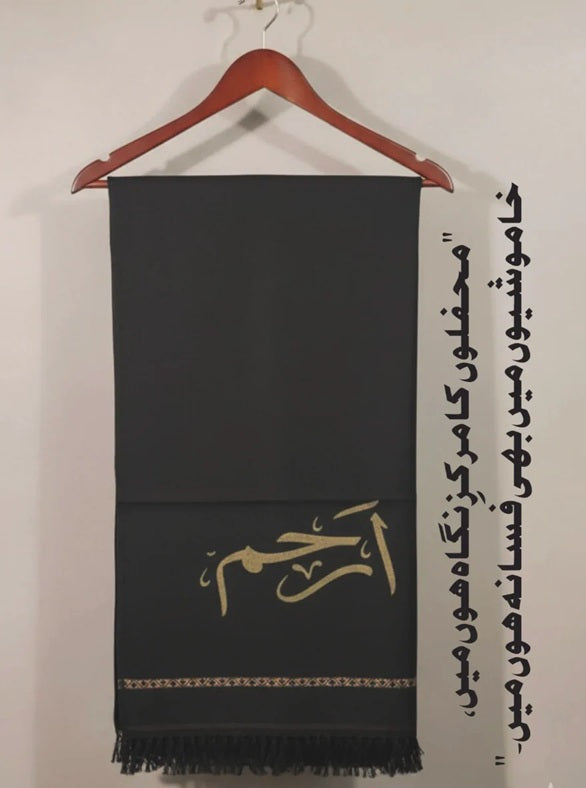 أرحم
"محفلوں کا مرکزِ نگاہ ہوں میں،
خاموشیوں میں بھی فسانہ ہوں میں۔"